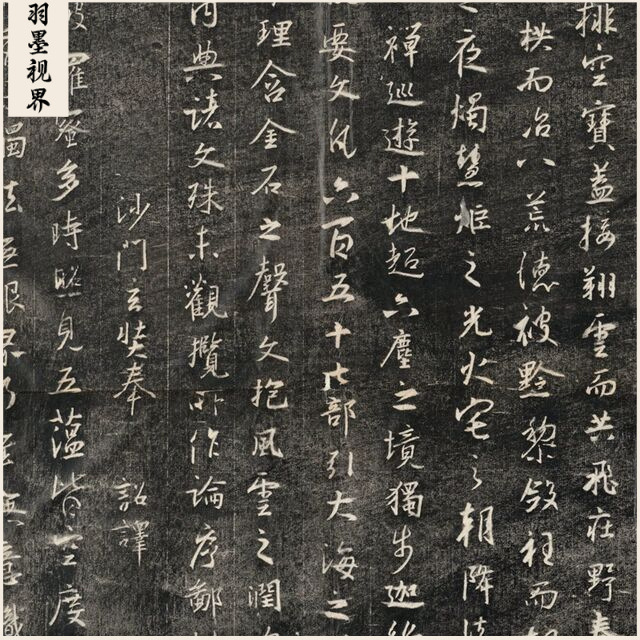 羽墨视界
排空寶蓋接翔雲而共飛莊野春
拱而治八荒德被黔黎斂衽而朝
夜燭慧炬之光火宅之朝降法
禪巡遊十地超六塵之境獨步迦維
要文凡六百五十七部引大海之
理含金石之聲文抱風雲之潤
內典諸文殊未觀攬所作論序鄙
沙門玄奘奉 詔譯
波羅蜜多時照見五蘊皆空度
觸法無眼界乃至無意識